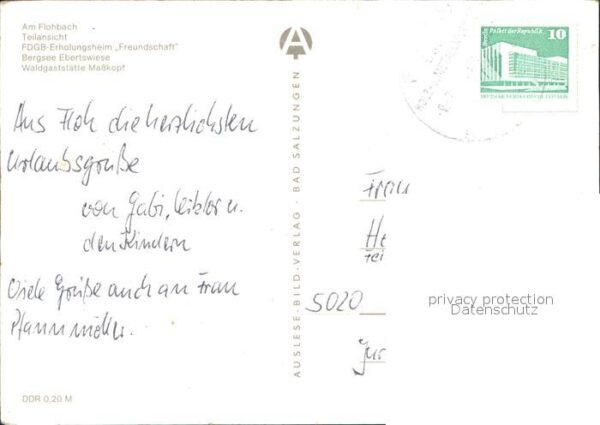 Am Flohbach
Teilansicht
FDGB-Erholungsheim „Freundschaft"
Bergsee Ebertswiese
Waldgaststätte Maßkopf
Aus Floh die herzlichsten
Urlaubsgrüße
von Gabi, u.
den Kindern
Viele Grüße auch an Frau
Pfannmöller.
DDR 0,20 M
AUSLESE-BILD-VERLAG · BAD SALZUNGEN
Berlin Palast der Republik
10
Frau
He
5020
privacy protection
Datenschutz